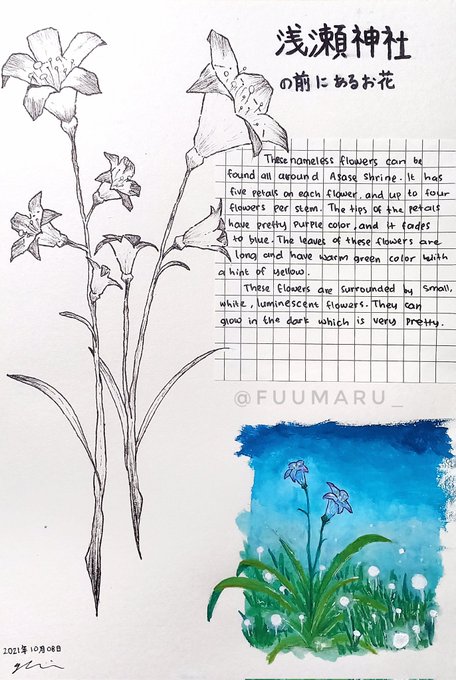 浅瀬神社
の前にあるお花
These nameless flowers can be
found all around Asase Shrine. It has
five petals on each flower, and up to four
flowers per stem. The tips of the petals
have pretty purple color, and it fades
to blue. The leaves of these flowers are
long and have warm green color with
a hint of yellow.
These flowers are surrounded by small,
white, luminescent flowers. They can
glow in the dark which is very pretty.
@FUUMARU_
2021年10月08日